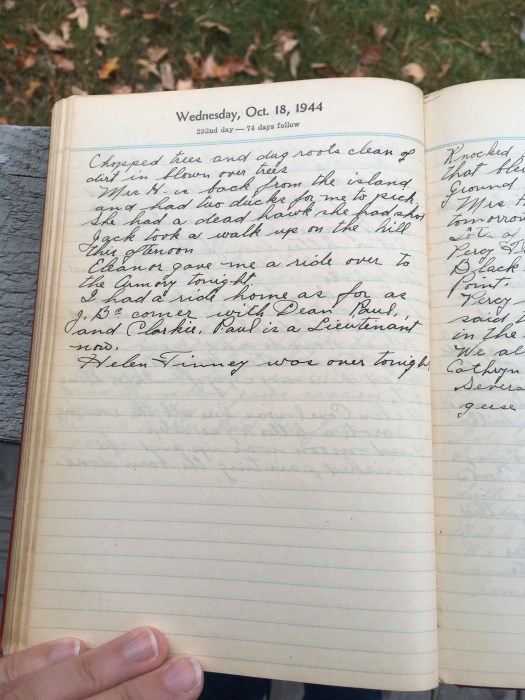 Wednesday, Oct. 18, 1944
292nd day — 74 days follow
Chopped trees and dug roots clean of
dirt in blown over trees
Mrs H. is back from the island
and had two ducks for me to pick.
She had a dead hawk she had shot
Jack took a walk up on the hill
this afternoon
Eleanor gave me a ride over to
the Armory tonight.
I had a ride home as far as
J. Bs corner with Dean, Paul,
and Clarkie. Paul is a Lieutenant
now.
Helen Tinney was over tonight
Knocked
that
Ground
Mrs H
tomorrow
Lot of
Percy
Black
Point.
Percy
said
in the
We al
Cathryn
Severa
geese